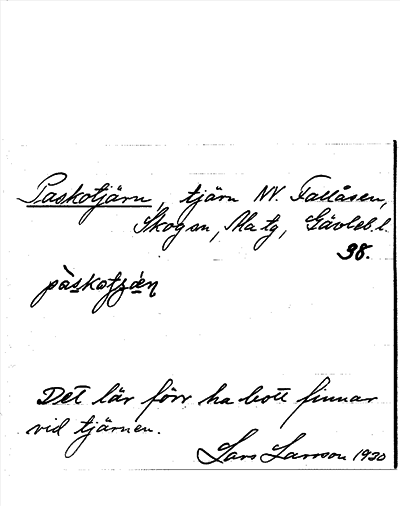 Paskotjärn, tjärn NV. Fallåsen,
Skogen, Ma tg, Gävleb.l.
98.
Det lär förr ha bott finnar
vid tjärnen.
Lars Larsson 1930